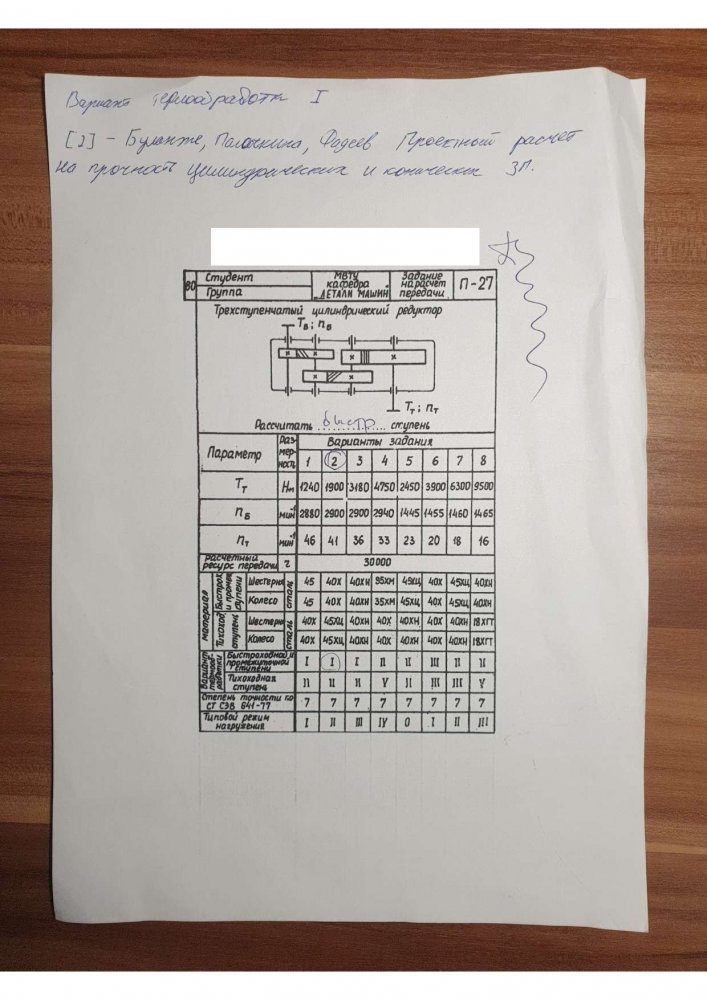 Вариант термообработки I
[2] - Буланже, Палочкина, Фадеев Проектный расчет
на прочность цилиндрических и конических ЗП.
80 Студент МВТУ кафедра "ДЕТАЛИ МАШИН" Задание на расчёт передачи П-27
Группа
Трехступенчатый цилиндрический редуктор
Tб; nб
Tт; nт
Рассчитать быстр ступень
Параметр Размерность Варианты задания
1 2 3 4 5 6 7 8
Tт Нм 1240 1900 3180 4750 2450 3900 6300 9500
nб мин⁻¹ 2880 2900 2900 2940 1445 1455 1460 1465
nт мин⁻¹ 46 41 36 33 23 20 18 16
расчетный ресурс передачи ч 30000
материал Быстрох. и промеж. ступени Шестерня сталь 45 40Х 40ХН 35ХМ 45ХЦ 40Х 45ХЦ 40ХН
Колесо 45 40Х 40ХН 35ХМ 45ХЦ 40Х 45ХЦ 40ХН
Тихоход. ступень Шестерня сталь 40Х 45ХЦ 40ХН 40Х 40Х 40Х 40ХН 18ХГТ
Колесо 40Х 45ХЦ 40ХН 40Х 40Х 40Х 40ХН 18ХГТ
Вариант термообработки Быстроходной и промежуточной ступени I I I II II III II II
Тихоходная ступень II II II V II III III V
Степень точности по СТ СЭВ 641-77 7 7 7 7 7 7 7 7
Типовой режим нагружения I II III IV 0 I II III